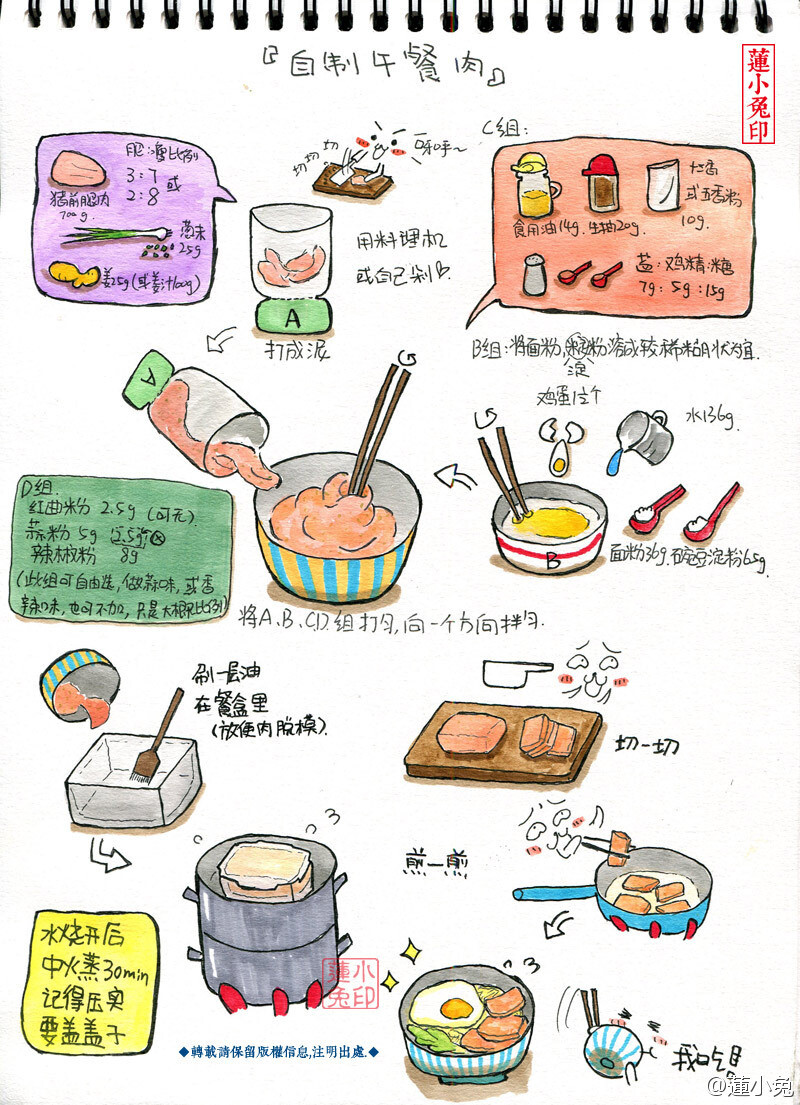 『自制午餐肉』
蓮小兔印
肥:瘦比例
3:7 或
2:8
猪前腿肉
700g.
葱末
25g
姜25g(或姜汁100g)
切
切
切切
呀呼~
用料理机
或自己剁
A
打成泥
C组:
十三香
或五香粉
10g.
食用油14g.
生抽20g.
盐:鸡精:糖
7g:5g:15g
B组:将面粉,淀粉溶成较稀粘用状为宜.
鸡蛋1个
水136g.
A
B
面粉36g.
豌豆淀粉65g.
D组.
红曲米粉 2.5g (可无)
蒜粉 5g
辣椒粉 8g
(此组可自由选,做蒜味,或香
辣味,也可不加,只是大概比例)
将A、B、C、D.组打匀,向一个方向拌匀.
刷一层油
在餐盒里
(放便肉脱模).
切一切
煎一煎
水烧开后
中火蒸30min
记得压实
要盖盖子
蓮小兔印
我吃!
◆轉載請保留版權信息,注明出處.◆
@蓮小兔